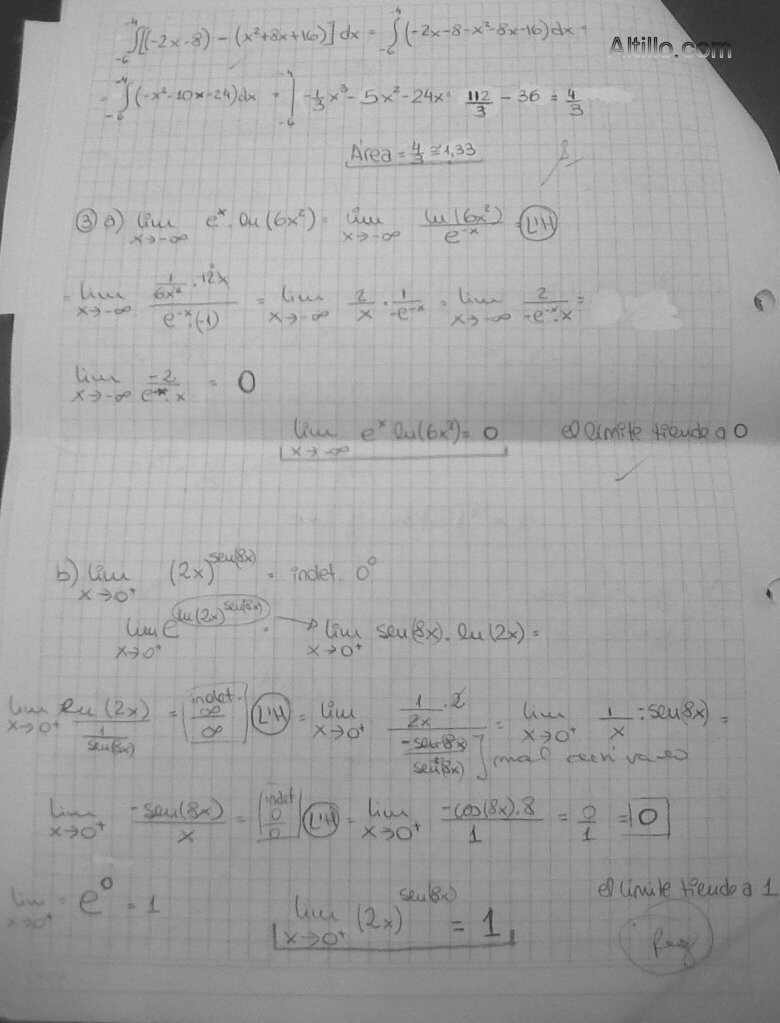 ∫₋₆⁻⁴[(-2x-8) - (x²+8x+16)] dx = ∫₋₆⁻⁴(-2x-8-x²-8x-16)dx =
Altillo.com
= ∫₋₆⁻⁴(-x²-10x-24)dx = |₋₆⁻⁴ -1/3 x³ - 5x² - 24x = 112/3 - 36 = 4/3
Area = 4/3 ≅ 1,33
③ a) lim x→-∞ eˣ. ln(6x²) = lim x→-∞ ln(6x²)/e⁻ˣ = L'H
= lim x→-∞ (1/6x² . 12x)/(e⁻ˣ.(-1)) = lim x→-∞ 2/x . 1/-e⁻ˣ = lim x→-∞ 2/-e⁻ˣ.x =
lim x→-∞ -2/e⁻ˣ.x = 0
lim x→-∞ eˣ ln(6x²) = 0 el límite tiende a 0
b) lim x→0⁺ (2x)^sen(8x) = indet. 0⁰
lim x→0⁺ e^ln(2x)^sen(8x) . → lim x→0⁺ sen(8x). ln(2x) =
lim x→0⁺ ln(2x)/(1/sen(8x)) = [indet. ∞/∞] L'H = lim x→0⁺ (1/2x . 2)/(-sen(8x)/sen²(8x)) = lim x→0⁺ 1/x : -sen(8x) =
mal derivado
lim x→0⁺ -sen(8x)/x = [indet 0/0] L'H = lim x→0⁺ -cos(8x).8/1 = 0/1 = 0
lim x→0⁺ = e⁰ = 1 lim x→0⁺ (2x)^sen(8x) = 1 el límite tiende a 1